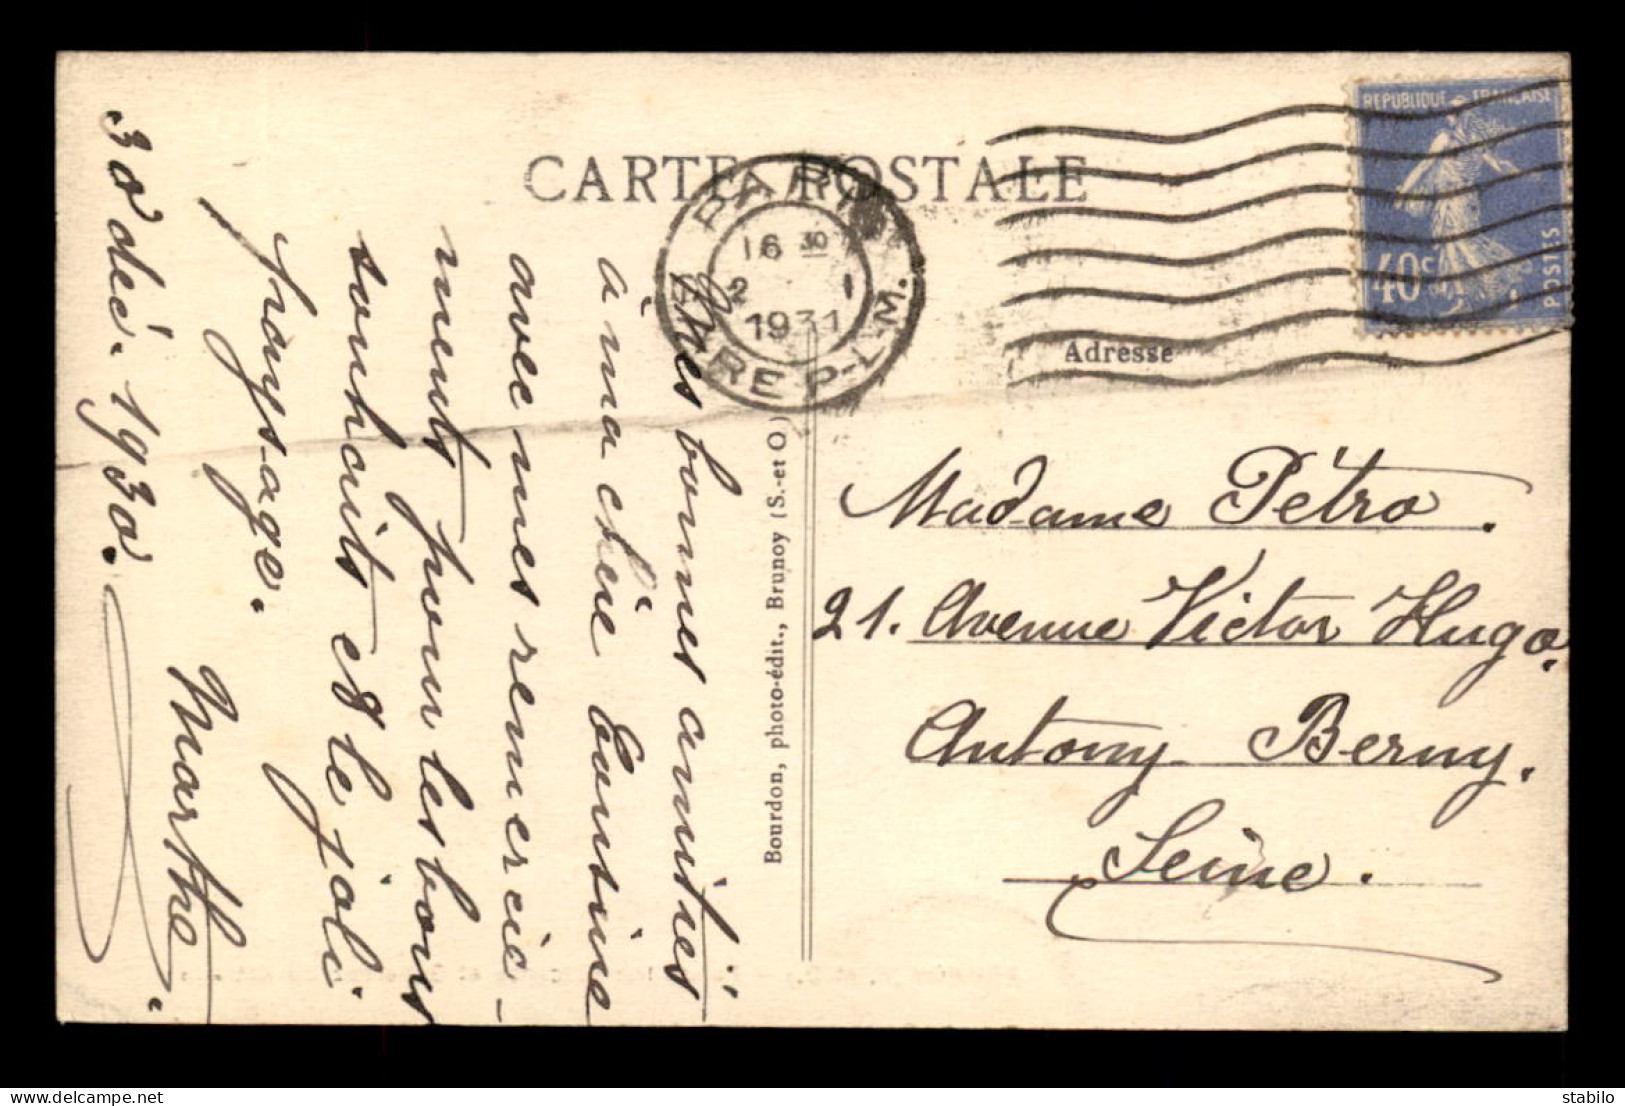 CARTE POSTALE
REPUBLIQUE FRANÇAISE
40c
POSTES
PARIS
16 30
2 1
1931
GARE P-L-M.
Adresse
Mes bonnes amitiés
à ma chère
avec mes remercie-
ments pour les bons
souhaits et le joli
paysage.
Marthe.
30 déc. 1930.
Bourdon, photo-édit., Brunoy (S.-et O.)
Madame Pétro.
21. Avenue Victor Hugo.
Antony Berny.
Seine.
delcampe.net
stabilo